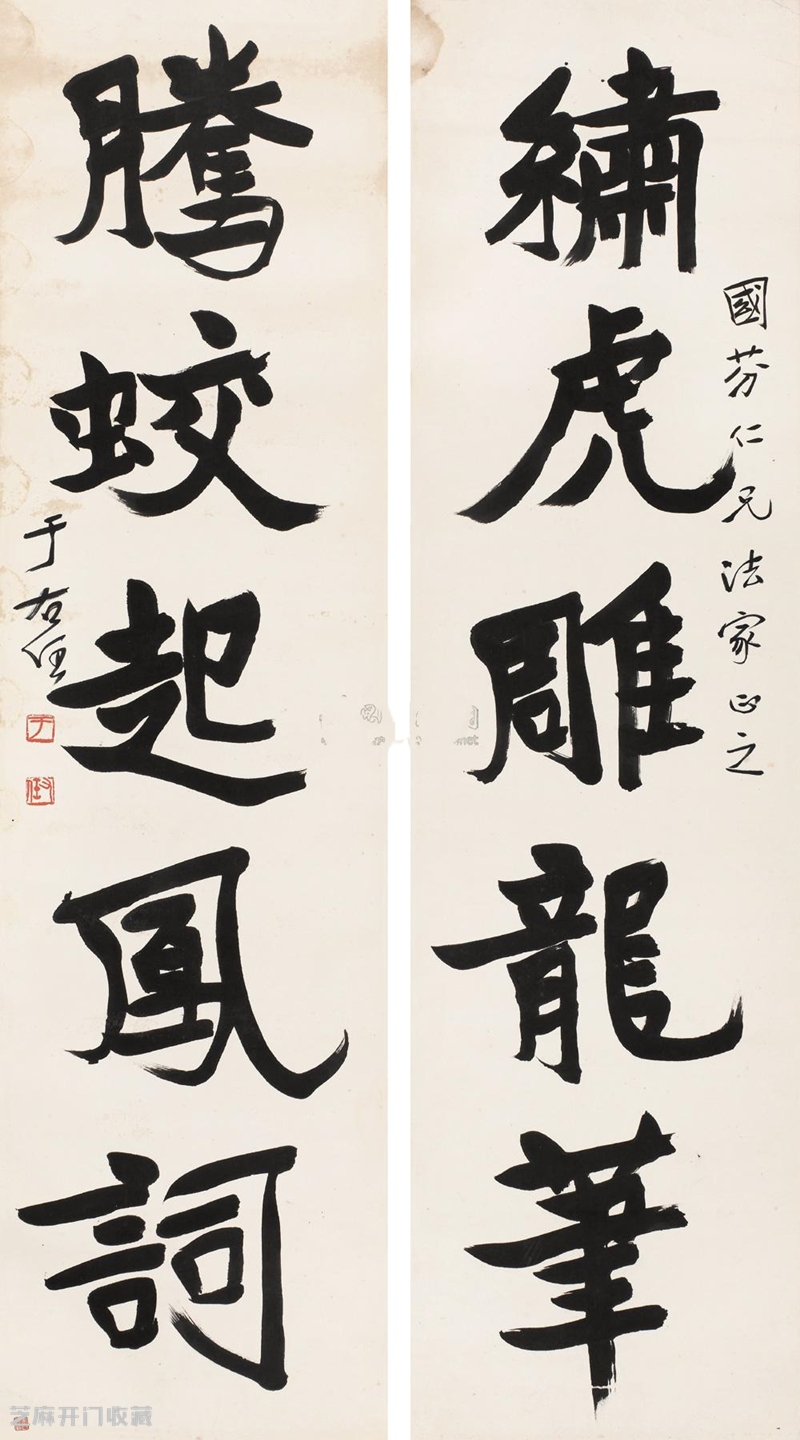 國芬仁兄法家正之
繡虎雕龍筆
騰蛟起鳳詞
于右任
芝麻开门收藏